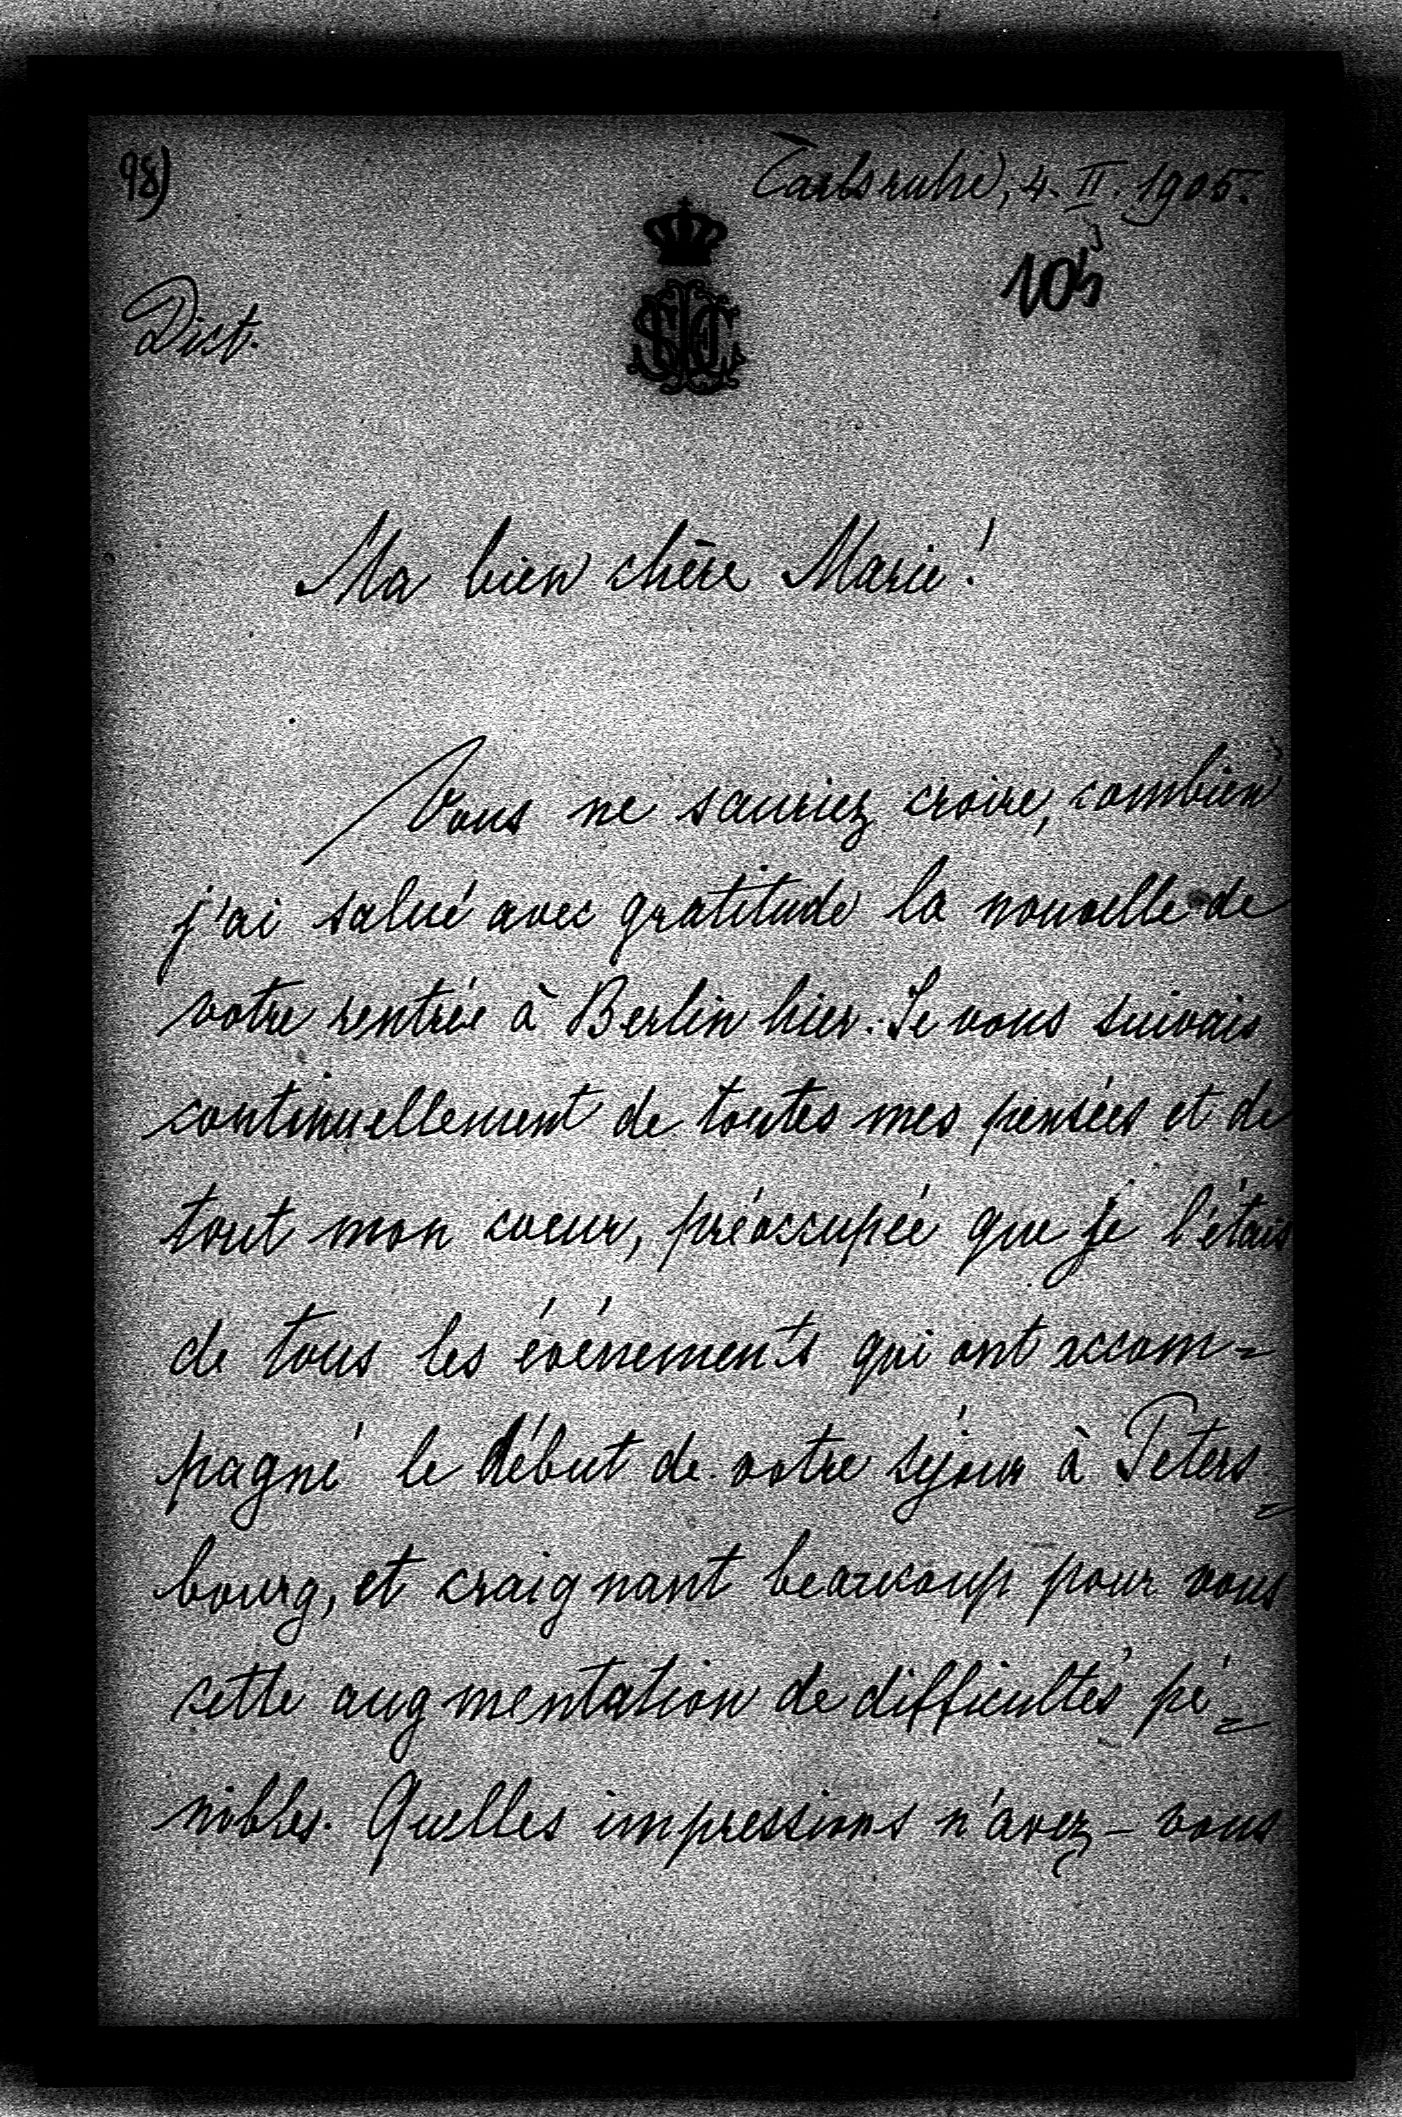 98)
Carlsruhe, 4. II. 1905.
105
Dict.
Ma bien chère Marie!
Vous ne sauriez croire, combien
j'ai salué avec gratitude la nouvelle de
votre rentrée à Berlin hier. Je vous suivais
continuellement de toutes mes pensées et de
tout mon coeur, préoccupée que je l'étais
de tous les événements qui ont accom-
pagné le début de votre séjour à Peters-
bourg, et craignant beaucoup pour vous
cette augmentation de difficultés pé-
nibles. Quelles impressions n'avez-vous